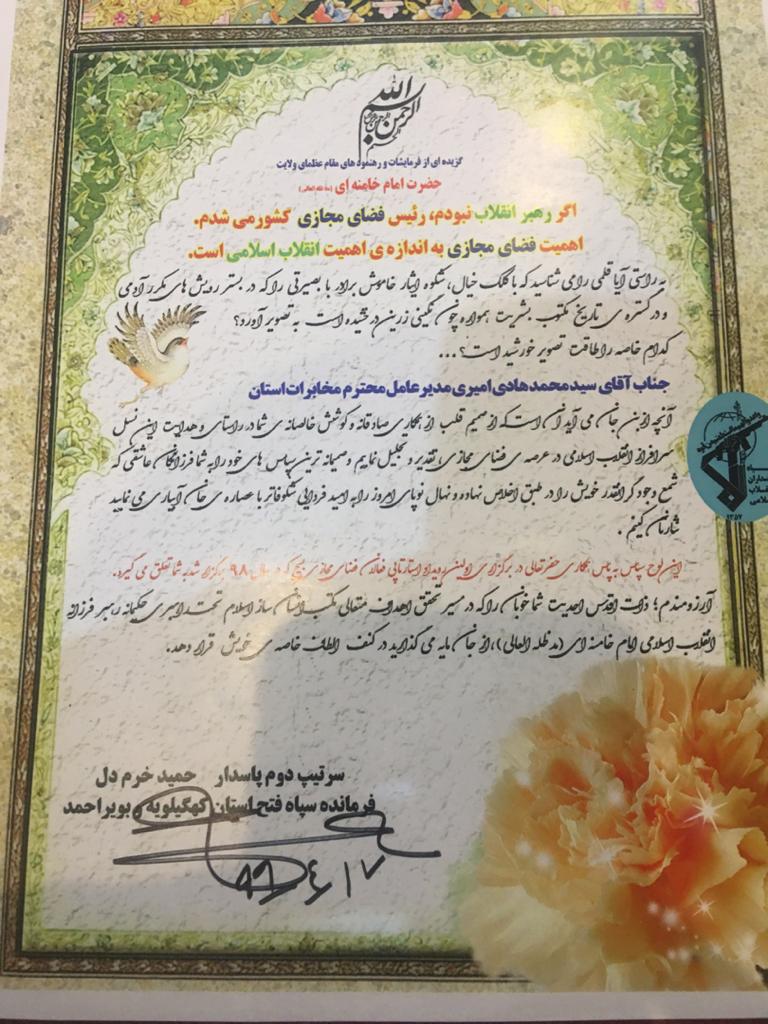 بسم الله الرحمن الرحیم
گزیده ای از فرمایشات و رهنمود های مقام عظمای ولایت
حضرت امام خامنه ای (مد ظله العالی)
اگر رهبر انقلاب نبودم، رئیس فضای مجازی کشور می شدم.
اهمیت فضای مجازی به اندازه ی اهمیت انقلاب اسلامی است.
به راستی آیا قلمی را می شناسید که با کلک خیال، شکوه ایثار خاموش برادر با بصیرتی را که در بستر رویش های مکرر آدمی
و در گستره ی تاریخ مکتوب بشریت همواره چون نگینی زرین درخشیده است به تصویر آورد؟
کدام خاصه را طاقت تصویر خورشید است؟...
جناب آقای سید محمد هادی امیری مدیر عامل محترم مخابرات استان
آنچه از بن جان می آید آن است که از صمیم قلب از همکاری صادقانه و کوشش خالصانه ی شما در راستای هدایت این نسل
سرافراز انقلاب اسلامی در عرصه ی فضای مجازی، تقدیر و تجلیل نماییم و صمیمانه ترین سپاس های خود را به شما فرزانگان عاشقی که
شمع وجود گرانقدر خویش را در طبق اخلاص نهاده و نهال نوپای امروز را به امید فردایی شکوفاتر با عصاره ی جان آبیاری می نمایید
نثارتان کنیم.
این لوح سپاس به پاس همکاری حضرتعالی در برگزاری اولین رویداد استارتاپی فعالان فضای مجازی بسیج که در سال ۹۸ برگزار شد به شما تعلق می گیرد.
آرزومندم؛ ذات اقدس احدیت شما خوبان را که در مسیر تحقق اهداف متعالی مکتب انسان ساز اسلام تحت رهبری حکیمانه رهبر فرزانه
انقلاب اسلامی امام خامنه ای (مد ظله العالی)، از جان مایه می گذارید در کنف الطاف خاصه ی خویش قرار دهد.
سرتیپ دوم پاسدار حمید خرم دل
فرمانده سپاه فتح استان کهگیلویه و بویراحمد
۱۳۵۷